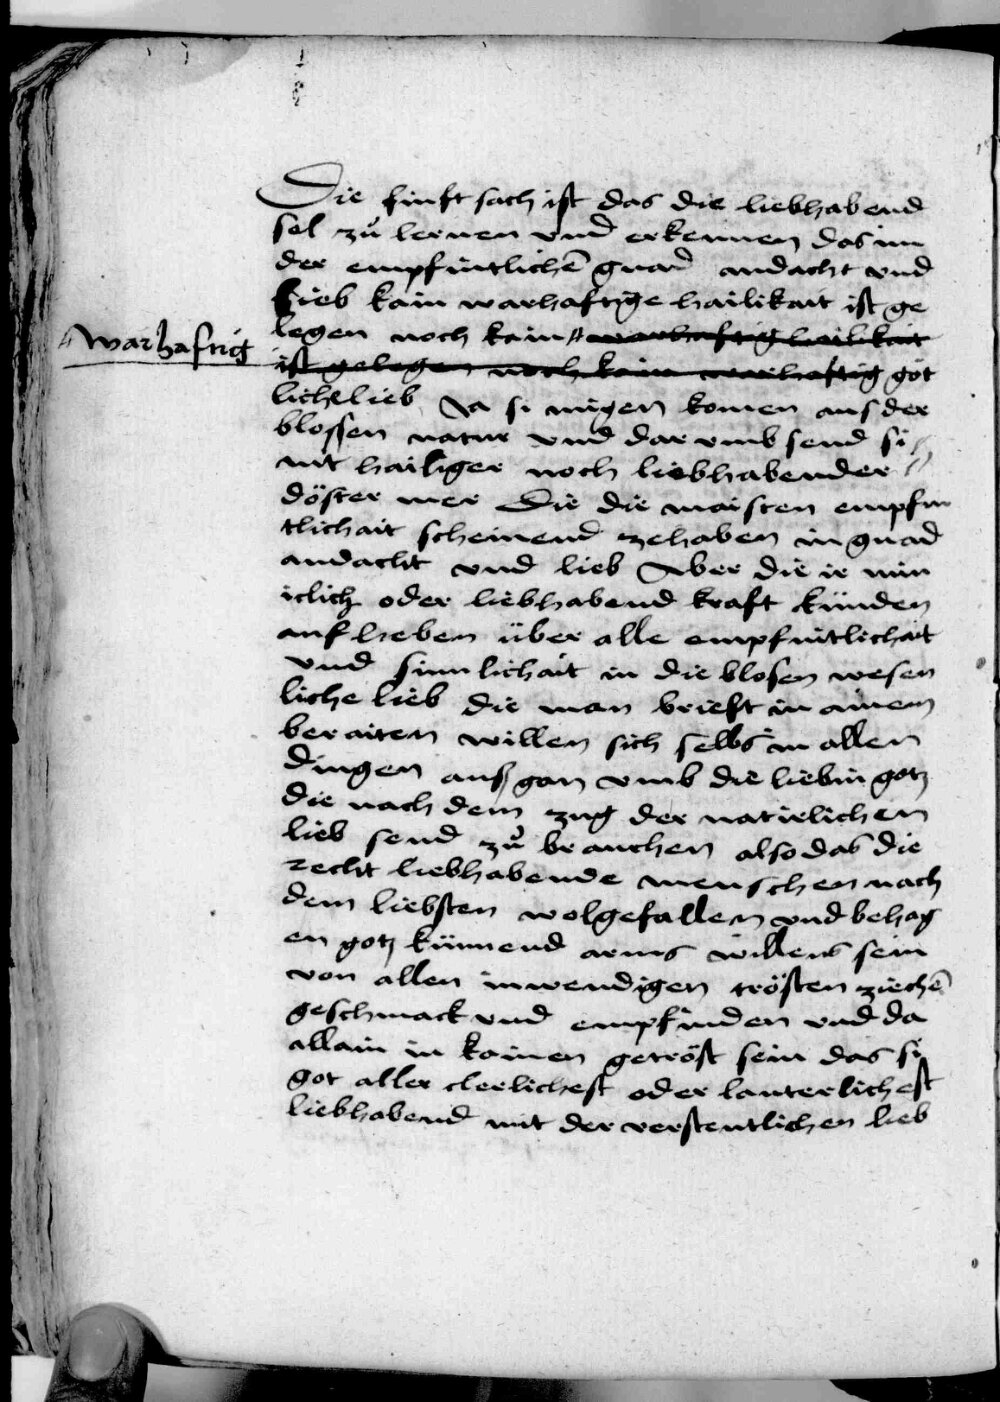 Die finft sach ist das die liebhabend
sel zů lernen vnd erkennen das inn
der empfintlichē gnad andacht vnd
lieb kain warhaftige hailikait ist ge
legen noch kain warhaftig hailikait
warhaftig
ist gelegen noch kain warhaftig göt
lichelieb Ja si mügen komen aus der
blossen natur vnd dar vmb send si
nit hailiger noch liebhabender
döster mer Die die maisten empfin
tlichait scheinend zehaben in gnad
andacht vnd lieb Aber die ir min
iclich oder liebhabend kraft künden
auf heben über alle empfintlichait
vnd sinnlichait in die blosen wesen
liche lieb die man brieft in ainem
beraiten willen sich selbs in allen
dingen ausz gan vmb die liebin gotz
die nach dem zug der natirlichen
lieb send zů brauchen also das die
recht liebhabende menschen nach
dem liebsten wolgefallen vnd behag
en gotz künnend arms willens sein
von allen inwendigen trösten ziechē
geschmack vnd empfinden vnd da
allain in kainen getröst sein das si
got aller clerlichest oder lauterlichest
liebhabend mit der verstentlichen lieb